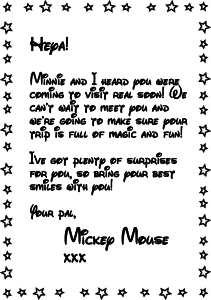 Heya!
Minnie and I heard you were
coming to visit real soon! We
can't wait to meet you and
we're going to make sure your
trip is full of magic and fun!
I've got plenty of surprises
for you, so bring your best
smiles with you!
Your pal,
Mickey Mouse
xxx